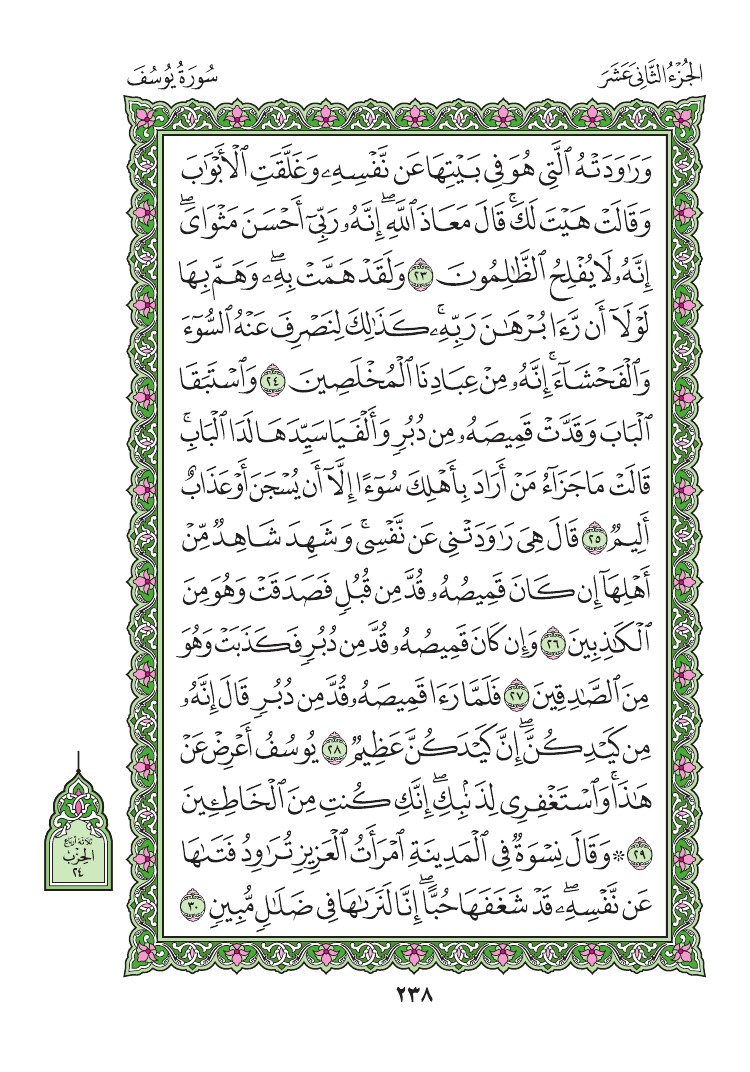 الجُزْءُ الثَّانِي عَشَرَ
سُورَةُ يُوسُفَ
وَرَٰوَدَتْهُ ٱلَّتِى هُوَ فِى بَيْتِهَا عَن نَّفْسِهِۦ وَغَلَّقَتِ ٱلْأَبْوَٰبَ
وَقَالَتْ هَيْتَ لَكَ ۚ قَالَ مَعَاذَ ٱللَّهِ ۖ إِنَّهُۥ رَبِّىٓ أَحْسَنَ مَثْوَاىَ ۖ
إِنَّهُۥ لَا يُفْلِحُ ٱلظَّٰلِمُونَ ٢٣ وَلَقَدْ هَمَّتْ بِهِۦ ۖ وَهَمَّ بِهَا
لَوْلَآ أَن رَّءَا بُرْهَٰنَ رَبِّهِۦ ۚ كَذَٰلِكَ لِنَصْرِفَ عَنْهُ ٱلسُّوٓءَ
وَٱلْفَحْشَآءَ ۚ إِنَّهُۥ مِنْ عِبَادِنَا ٱلْمُخْلَصِينَ ٢٤ وَٱسْتَبَقَا
ٱلْبَابَ وَقَدَّتْ قَمِيصَهُۥ مِن دُبُرٍ وَأَلْفَيَا سَيِّدَهَا لَدَا ٱلْبَابِ ۚ
قَالَتْ مَا جَزَآءُ مَنْ أَرَادَ بِأَهْلِكَ سُوٓءًا إِلَّآ أَن يُسْجَنَ أَوْ عَذَابٌ
أَلِيمٌ ٢٥ قَالَ هِىَ رَٰوَدَتْنِى عَن نَّفْسِى ۚ وَشَهِدَ شَاهِدٌ مِّنْ
أَهْلِهَآ إِن كَانَ قَمِيصُهُۥ قُدَّ مِن قُبُلٍ فَصَدَقَتْ وَهُوَ مِنَ
ٱلْكَٰذِبِينَ ٢٦ وَإِن كَانَ قَمِيصُهُۥ قُدَّ مِن دُبُرٍ فَكَذَبَتْ وَهُوَ
مِنَ ٱلصَّٰدِقِينَ ٢٧ فَلَمَّا رَءَا قَمِيصَهُۥ قُدَّ مِن دُبُرٍ قَالَ إِنَّهُۥ
مِن كَيْدِكُنَّ ۖ إِنَّ كَيْدَكُنَّ عَظِيمٌ ٢٨ يُوسُفُ أَعْرِضْ عَنْ
هَٰذَا ۚ وَٱسْتَغْفِرِى لِذَنۢبِكِ ۖ إِنَّكِ كُنتِ مِنَ ٱلْخَاطِـِٔينَ
٢٩ ۞ وَقَالَ نِسْوَةٌ فِى ٱلْمَدِينَةِ ٱمْرَأَتُ ٱلْعَزِيزِ تُرَٰوِدُ فَتَىٰهَا
عَن نَّفْسِهِۦ ۖ قَدْ شَغَفَهَا حُبًّا ۖ إِنَّا لَنَرَىٰهَا فِى ضَلَٰلٍ مُّبِينٍ ٣٠
ثلاثة أرباع
الحِزْب
٢٤
٢٣٨